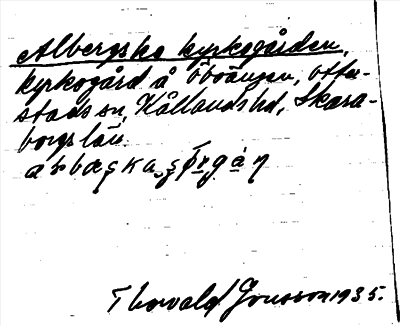 Albergska kyrkogården,
kyrkogård å Öboängen, Otte-
stads sn, Kållands hd, Skara-
borgs län.
Thorvald Jonsson 1935.